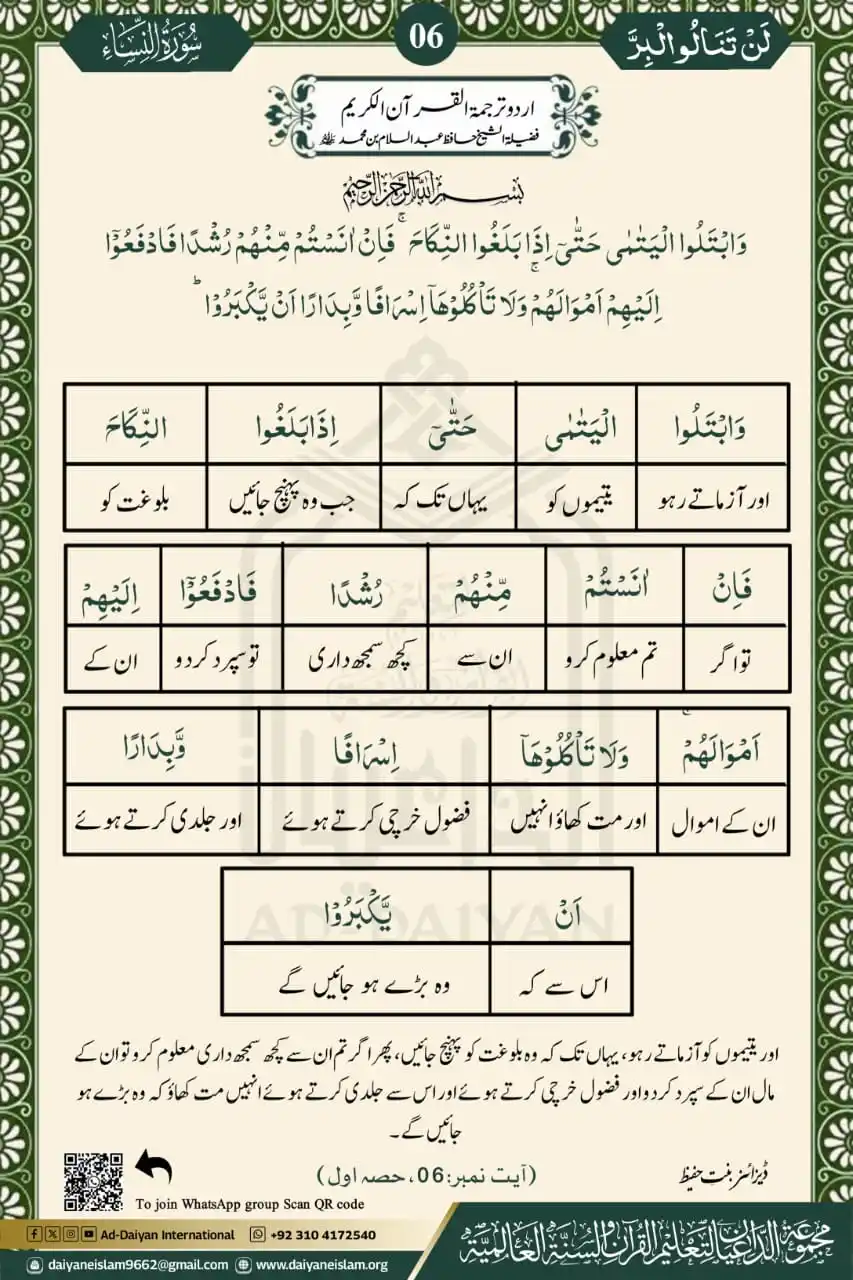 لَنْ تَنَالُوا الْبِرَّ
06
سُوْرَةُ النِّسَاء
اردو ترجمۃ القرآن الکریم
فضیلۃ الشیخ حافظ عبدالسلام بن محمد
بِسْمِ اللّٰهِ الرَّحْمٰنِ الرَّحِيْمِ
وَابْتَلُوا الْيَتٰمٰى حَتّٰۤى اِذَا بَلَغُوا النِّكَاحَ ۚ فَاِنْ اٰنَسْتُمْ مِّنْهُمْ رُشْدًا فَادْفَعُوْۤا
اِلَيْهِمْ اَمْوَالَهُمْ ۚ وَلَا تَاْكُلُوْهَاۤ اِسْرَافًا وَّبِدَارًا اَنْ يَّكْبَرُوْا ؕ
وَابْتَلُوا الْيَتٰمٰى حَتّٰۤى اِذَا بَلَغُوا النِّكَاحَ
اور آزماتے رہو یتیموں کو یہاں تک کہ جب وہ پہنچ جائیں بلوغت کو
فَاِنْ اٰنَسْتُمْ مِّنْهُمْ رُشْدًا فَادْفَعُوْۤا اِلَيْهِمْ
تو اگر تم معلوم کرو ان سے کچھ سمجھ داری تو سپرد کر دو ان کے
اَمْوَالَهُمْ ۚ وَلَا تَاْكُلُوْهَاۤ اِسْرَافًا وَّبِدَارًا
ان کے اموال اور مت کھاؤ انہیں فضول خرچی کرتے ہوئے اور جلدی کرتے ہوئے
اَنْ يَّكْبَرُوْا
اس سے کہ وہ بڑے ہو جائیں گے
AD-DAIYAN
اور یتیموں کو آزماتے رہو، یہاں تک کہ وہ بلوغت کو پہنچ جائیں، پھر اگر تم ان سے کچھ سمجھ داری معلوم کرو تو ان کے
مال ان کے سپرد کر دو اور فضول خرچی کرتے ہوئے اور اس سے جلدی کرتے ہوئے انہیں مت کھاؤ کہ وہ بڑے ہو
جائیں گے۔
ڈیزائنر بنت حفیظ
(آیت نمبر:06، حصہ اول)
To join WhatsApp group Scan QR code
مجموعة الداعيان لتعليم القرآن والسنة العالمية
Ad-Daiyan International +92 310 4172540
daiyaneislam9662@gmail.com www.daiyaneislam.org